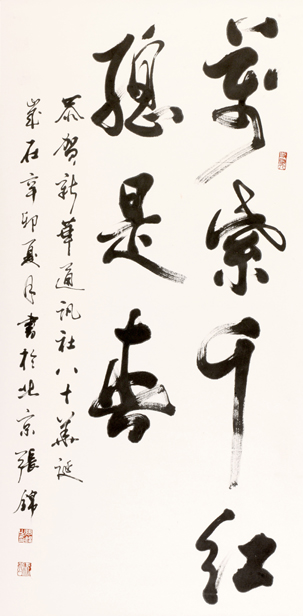 萬紫千紅
總是春
恭賀新華通訊社八十華誕
歲在辛卯夏月書於北京張錦